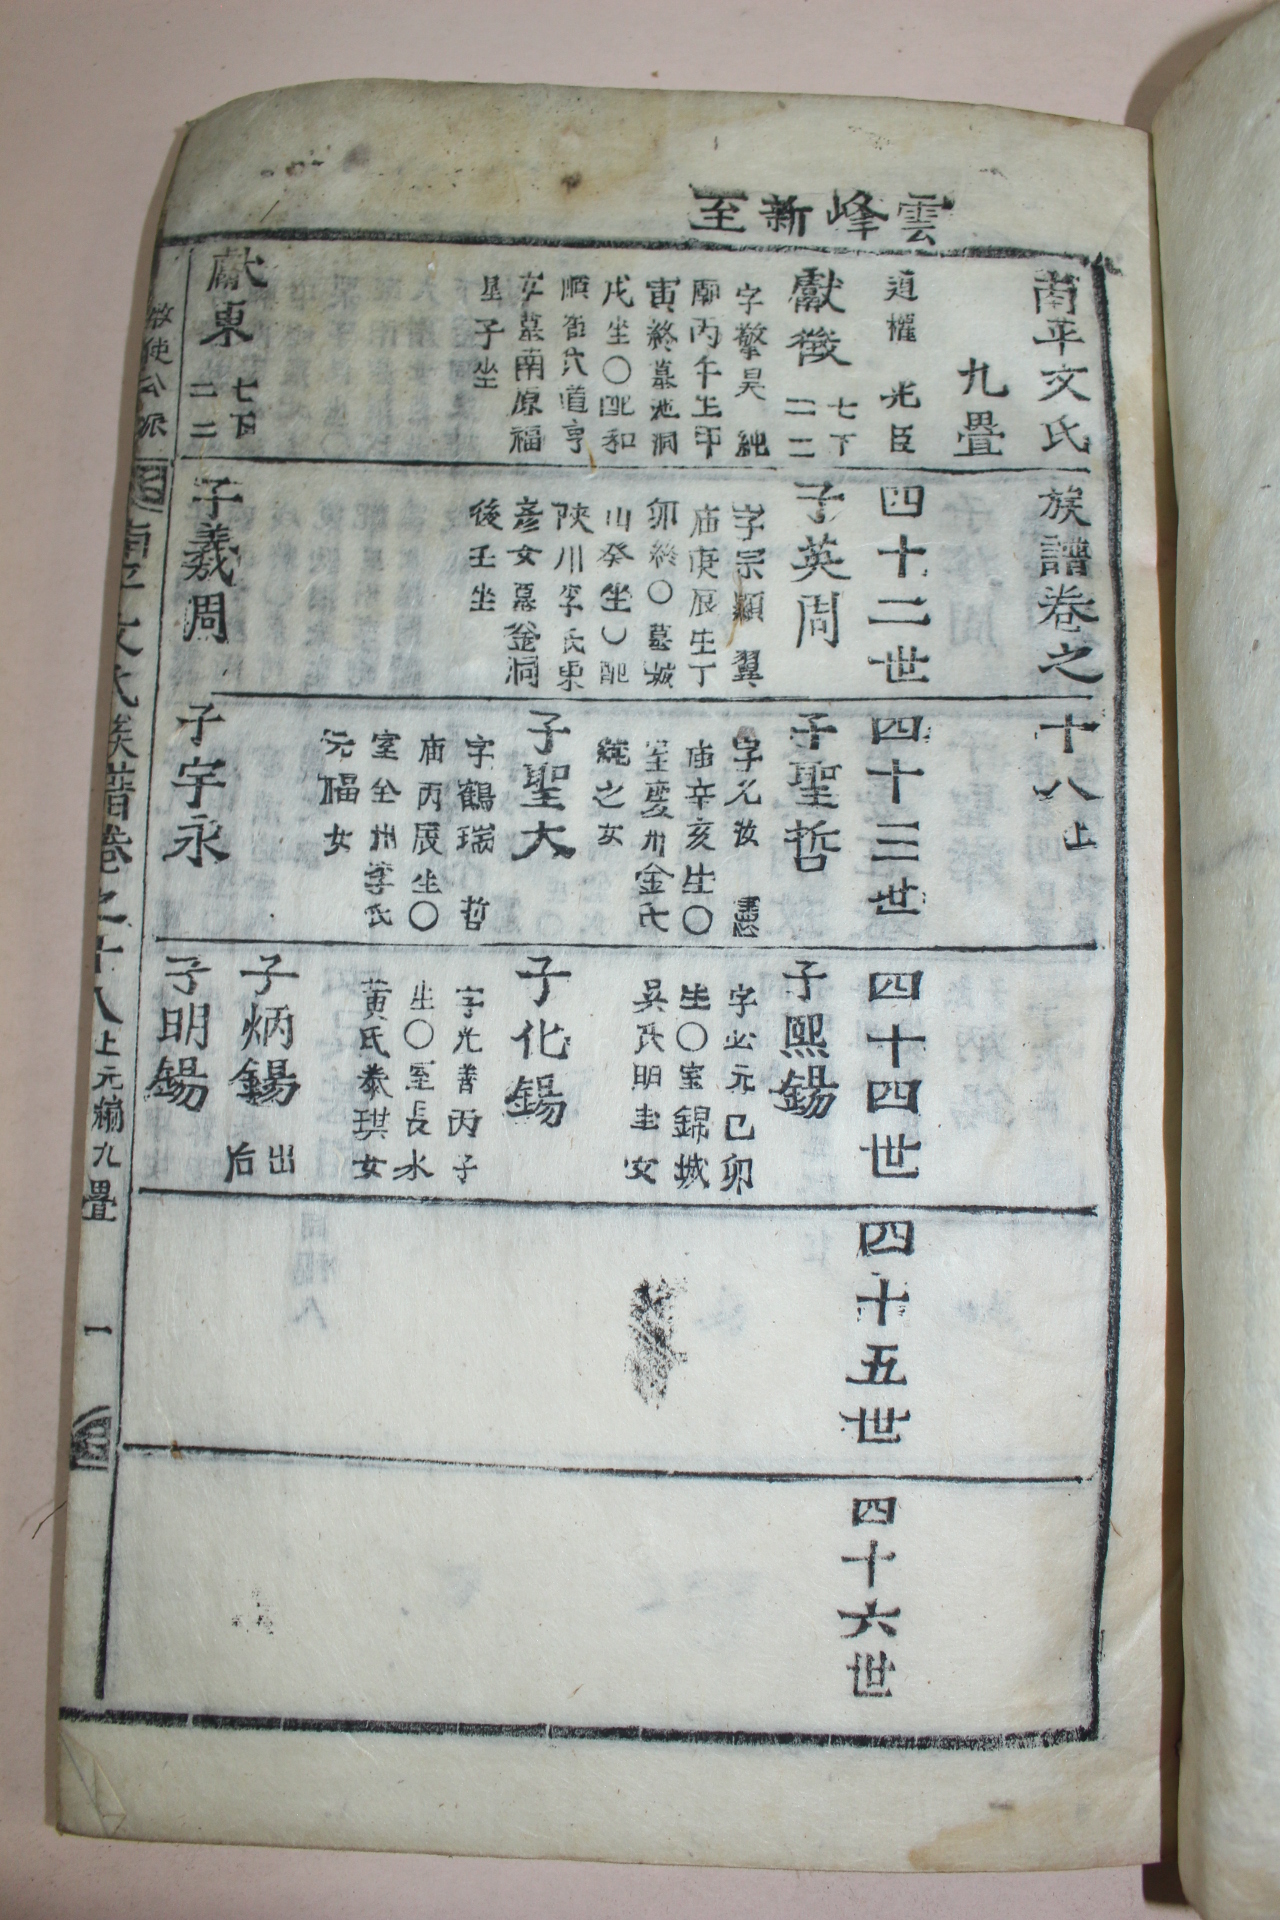 雲峰新至
南平文氏族譜卷之十八上
九疊
道權 光臣
獻徵 七下二二
字擎昊 純
廟丙午生甲
寅終墓池洞
戌坐〇配和
順崔氏道亨
女墓南原福
星子坐
獻東 七下二二
四十二世
子英周
字宗顯 翼
庙庚辰生丁
卯終〇墓城
山癸坐〇配
陜川李氏東
彦女墓釜洞
後壬坐
子義周
四十三世
子聖哲
字允汝 憲
庙辛亥生〇
室慶州金氏
純之女
子聖大
字鶴瑞 哲
庙丙辰生〇
室全州李氏
元福女
子宇永
四十四世
子熙錫
字公元己卯
生〇室錦城
吳氏明圭女
子化錫
字光善丙子
生〇室長水
黃氏泰琪女
子炳錫 出后
子明錫
四十五世
四十六世
敎使公派
南平文氏族譜卷之十八上元編九疊 一